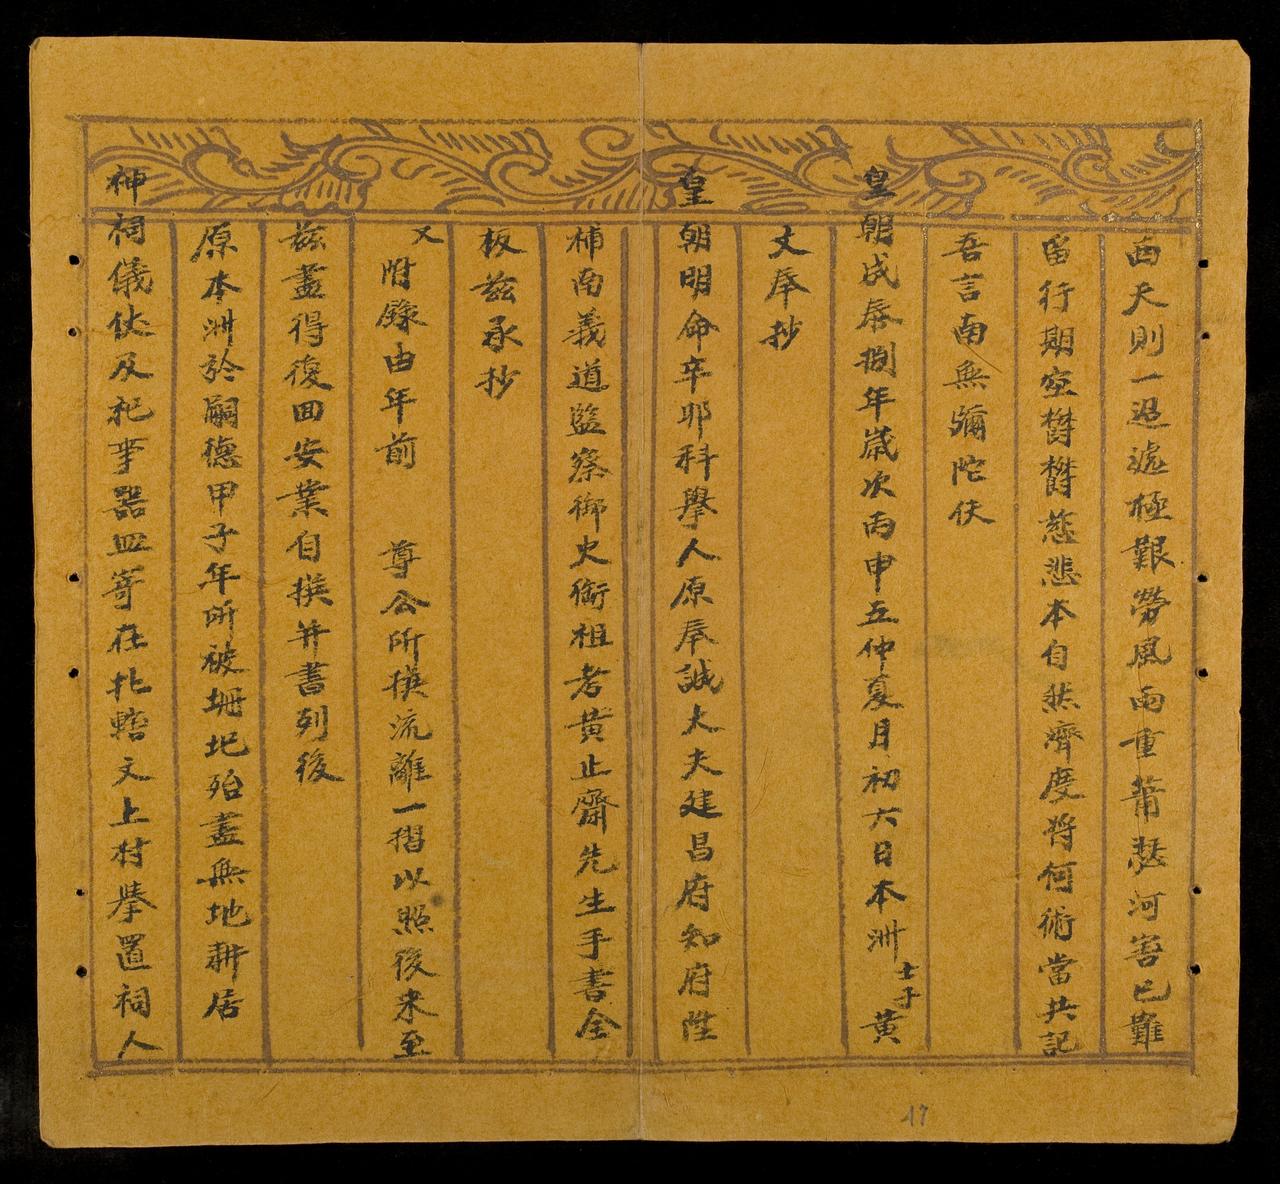 西天則一過遠極艱勞風雨重莆愁河害已難
留行期空欝欝慈悲本自然濟度將何術當共記
吾言南無彌陀伕
皇朝成泰捌年歲次丙申五仲夏月初六日本洲士子黃
丈奉抄
皇朝明命辛卯科舉人原奉誠大夫建昌府知府陞
補南義道監察御史銜祖考黃止齋先生手書全
板茲承抄
又附錄由年前 尊公所撰流離一摺以照後来至
茲盡得復回安業自撰并書列後
原本洲於嗣德甲子年所被坍圯殆盡無地耕居
神祠儀仗及祀事器皿寄在扎轄文上村拳置祠人
17